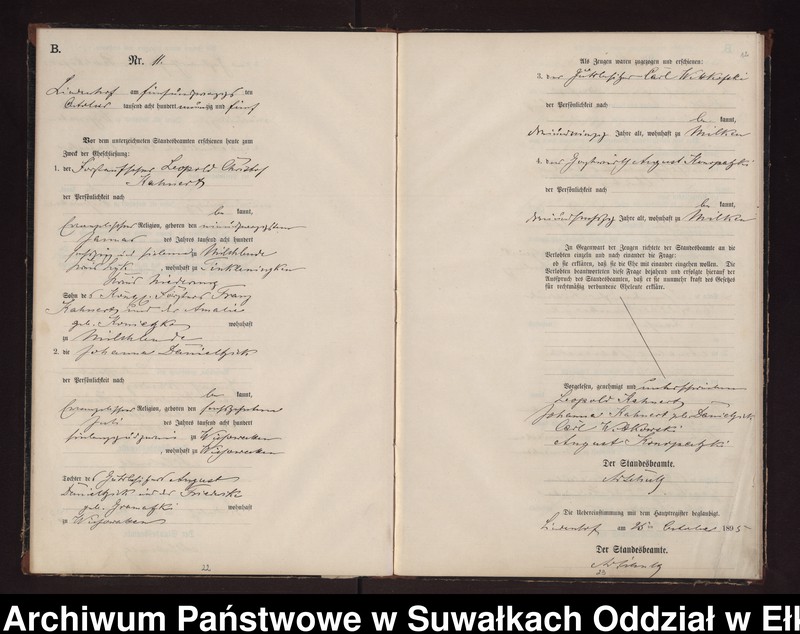 B.
Nr. 11.
Lindenhof am fünfundzwanzigsten
October tausend acht hundert neunzig und fünf
Vor dem unterzeichneten Standesbeamten erschienen heute zum
Zweck der Eheschließung:
1. der Forstaufseher Leopold Christof
Kahnert
der Persönlichkeit nach
be kannt,
Evangelischer Religion, geboren den
Januar des Jahres tausend acht hundert
sechszig und sieben zu Milchbude
Kreis Lyck, wohnhaft zu
Kreis Niederung
Sohn des Königl. Försters Franz
Kahnert und der Amalie
geb. wohnhaft
zu Milchbude
2. die Johanna Danielzik
der Persönlichkeit nach
be kannt,
Evangelischer Religion, geboren den
Juli des Jahres tausend acht hundert
zu Wissowatten
, wohnhaft zu Wissowatten
Tochter des Gutsbesitzers August
Danielzik und der Friederike
geb. wohnhaft
zu Wissowatten
22
Als Zeugen waren zugezogen und erschienen:
3. der Gutsbesitzer Carl
der Persönlichkeit nach
be kannt,
Jahre alt, wohnhaft zu Milken
4. der Gastwirth August Konopatzki
der Persönlichkeit nach
be kannt,
Jahre alt, wohnhaft zu Milken
In Gegenwart der Zeugen richtete der Standesbeamte an die
Verlobten einzeln und nach einander die Frage:
ob sie erklären, daß sie die Ehe mit einander eingehen wollen. Die
Verlobten beantworteten diese Frage bejahend und erfolgte hierauf der
Ausspruch des Standesbeamten, daß er sie nunmehr kraft des Gesetzes
für rechtmäßig verbundene Eheleute erkläre.
Vorgelesen, genehmigt und unterschrieben
Leopold Kahnert
Johanna Kahnert geb. Danielzik
Carl
August Konopatzki
Der Standesbeamte.
Die Uebereinstimmung mit dem Hauptregister beglaubigt.
Lindenhof am 25ten October 1895
Der Standesbeamte.
23
Archiwum Państwowe w Suwałkach Oddział w Ełk